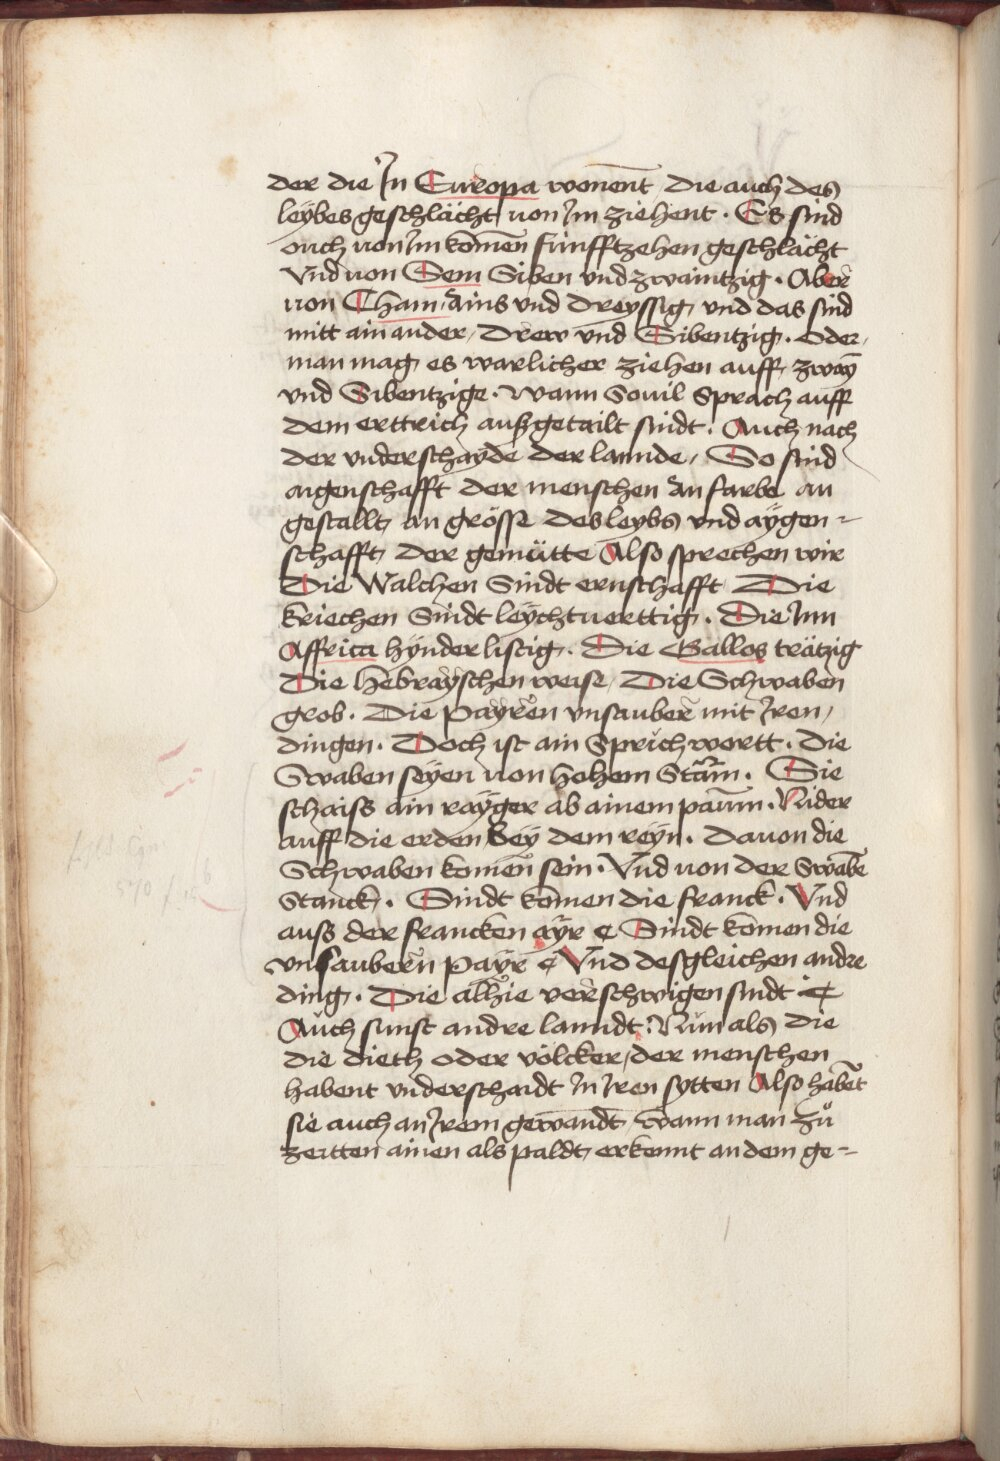 der die In Europa wonent die auch des
leybes geschlächt von Im ziehent · Es sind
ouch von Im komen̄ fünfftzehen geschlächt
Vnd von Sem Siben vnd zwaintzig · Aber
von Cham, Ains vnd dreyssig, vnd das sind
mitt ain ander, drew vnd Sibentzig · Oder,
man mag es warlicher ziehen auff, zway
vnd Sibentzige · wann Souil Sprach auff
dem erttrich außgetailt sindt. Auch nach
der vnderschayde der lannde, So sind
aigenschafft der menschen An farbe an
gestallt, an grösse des leybs vnd aÿgen=
schafft, der gemütte Also sprechen wir
Die Walchen Sindt ernschafft, Die
kriechen Sindt leÿchtuerttig · Die Inn
Affrica hÿnderlistig · Die Gallos trätzig
Die Hebraÿschen weise, Die Schwaben
grob. Die Paÿren vnsauber mit Iren,
dingen. Doch ist ain Sprichwortt. die
Swaben seÿen von hohem Stam̄. Sie
schaiss ain raÿger ab ainem pawm. Nider
auff die erden bey dem reÿn. Dauon die
Schwaben komen̄ sein. Vnd von der Swabē
Stanck. Sindt komen die franck. Vnd
auss der francken aÿr Sindt komen die
vnsaubern Paÿr Vnd desgleichen andre
ding. Die alhie verschwigen sindt
Auch sunst andre lanndt. Nun als die
die dieth oder völcker, der menschen
habent vnderschaidt In Iren sytten Also habēt
sie auch an Irem gewandt, wann man zů
zeitten ainen als paldt, erkennt an dem ge=